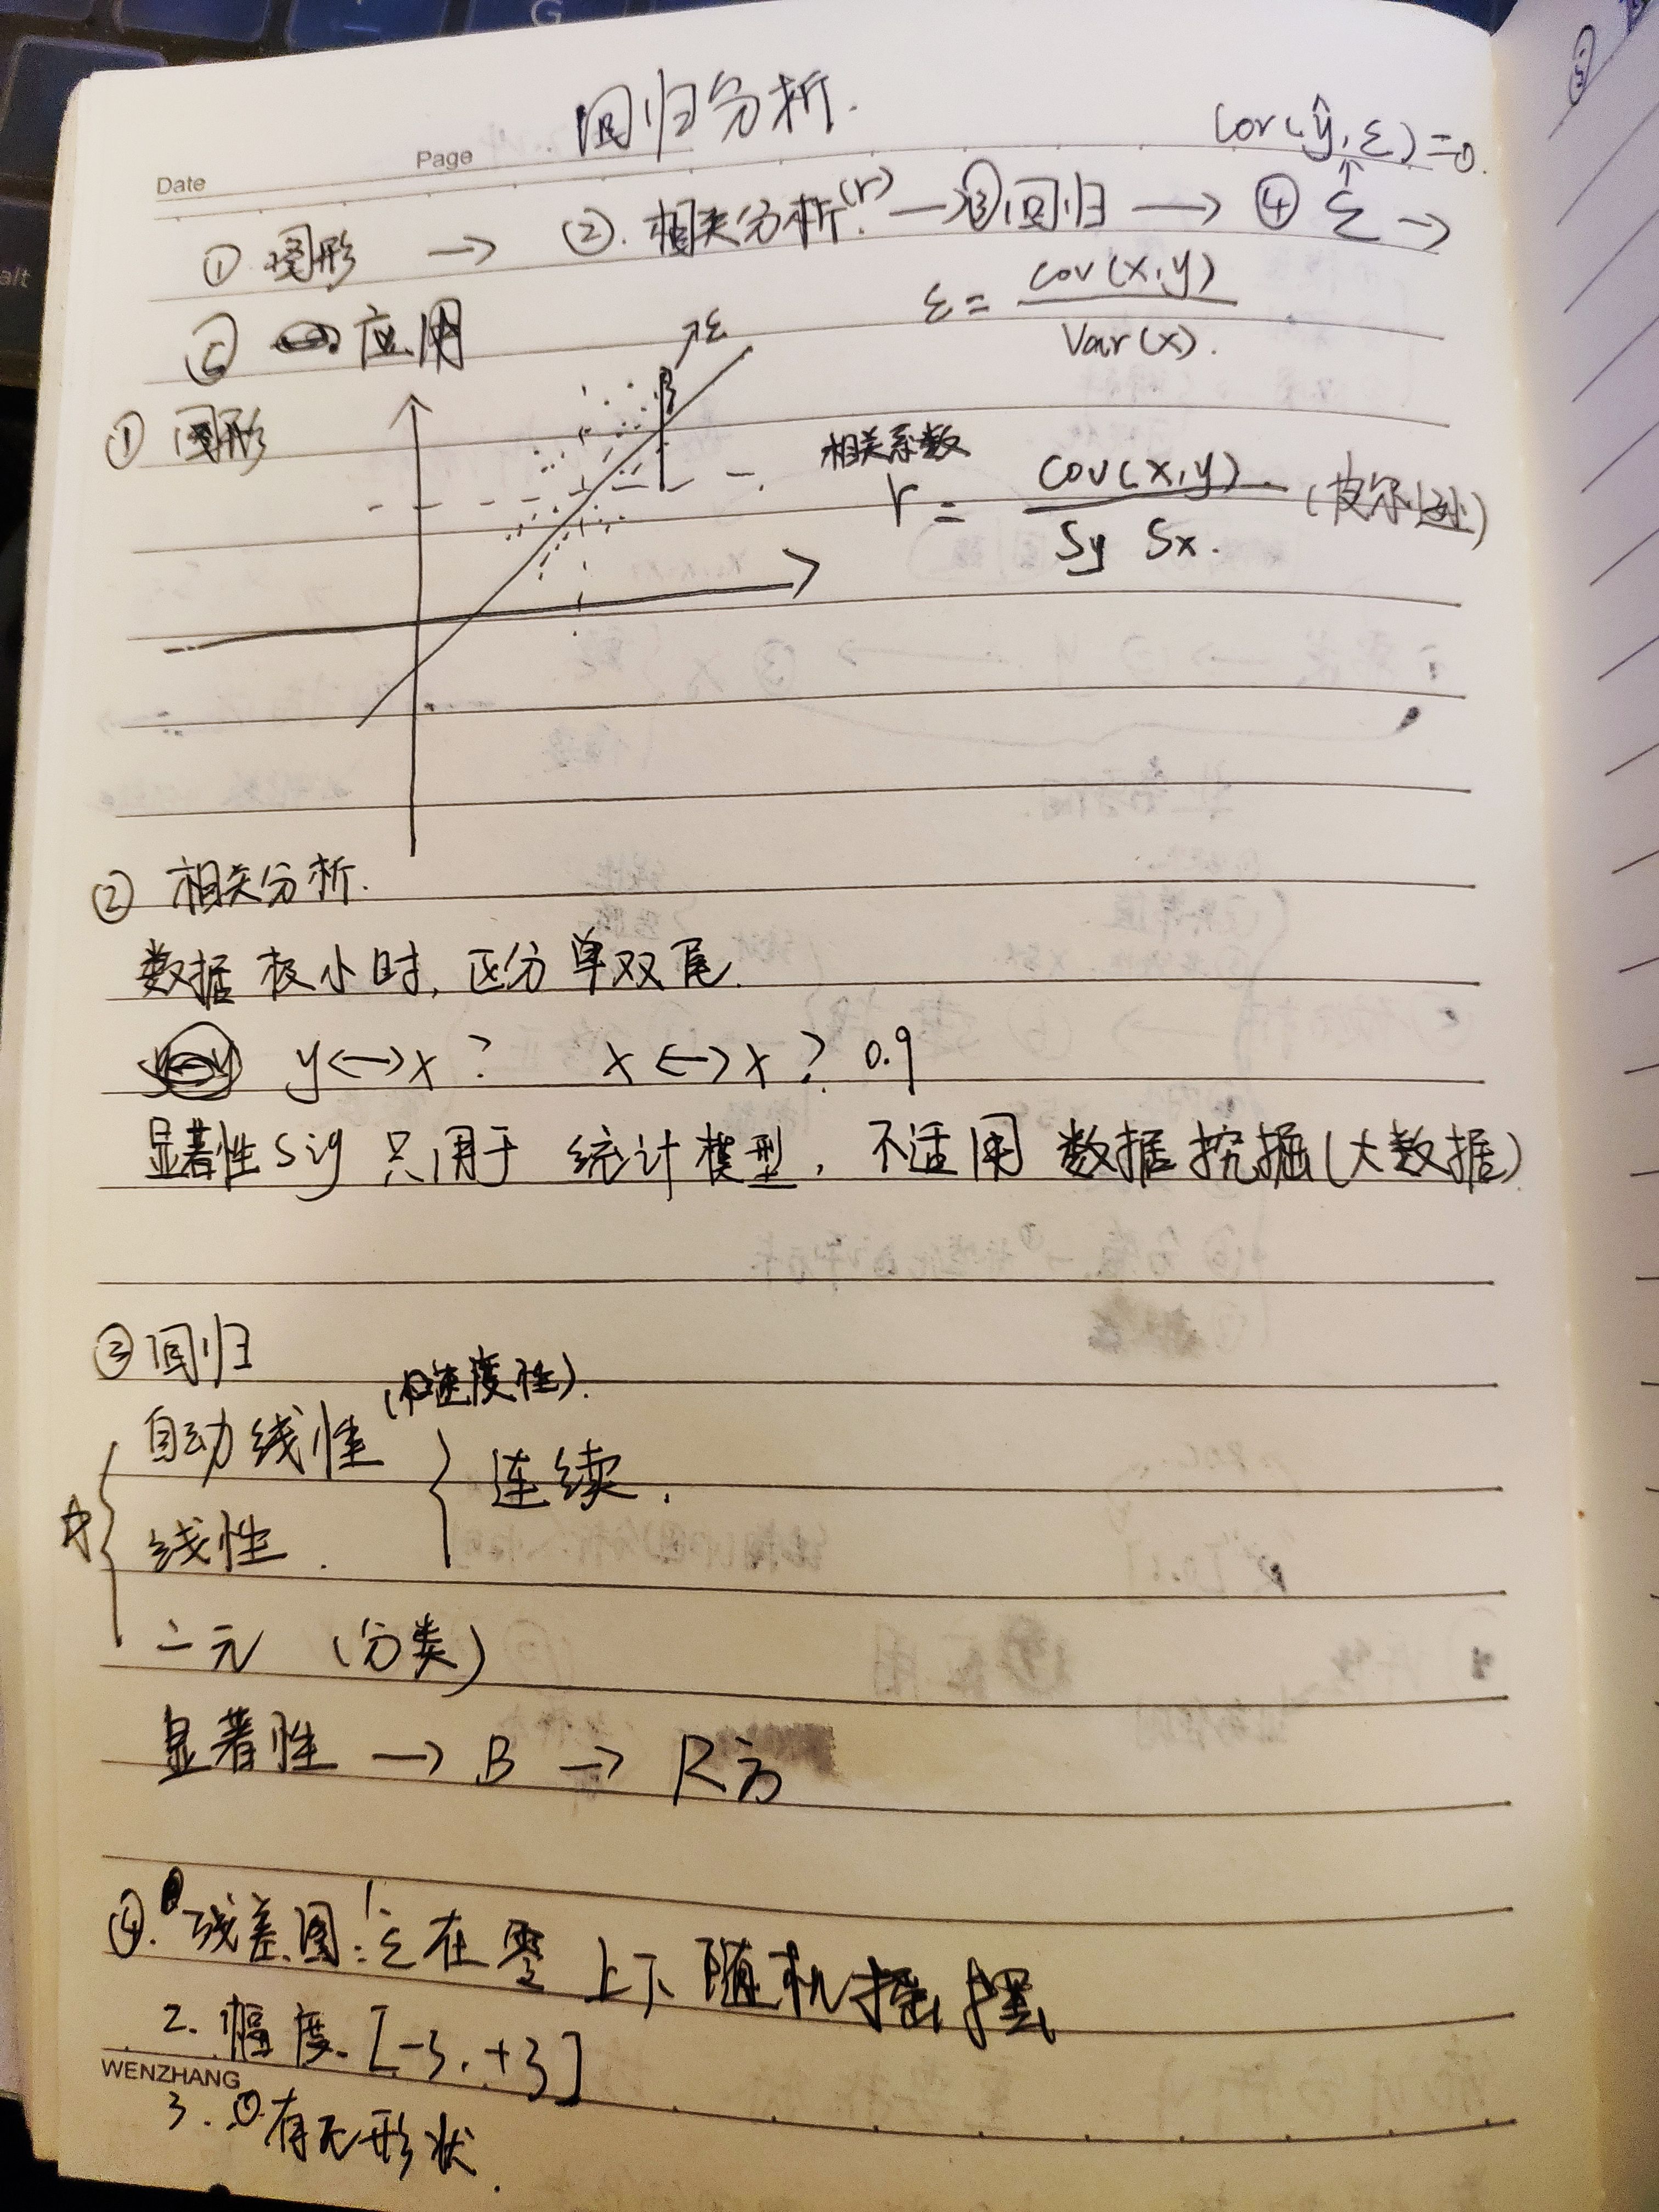 回归分析.
Date Page
Cor(ŷ,ε)=0.
①图形 → ②.相关分析.(r) →③回归 → ④ ε →
应用
ε= cov(x,y) / Var(x).
↗ε
①图形
相关系数
r = cov(x,y) / Sy Sx. (皮尔逊)
②相关分析.
数据极小时,区分单双尾.
y↔x? x↔x? 0.9
显著性sig只用于统计模型,不适用数据挖掘(大数据)
③回归
自动线性
线性.
连续.
二元 (分类)
显著性 → B → R方
④.残差图:1.ε在零上下随机摇摆
2.幅度.[-3,+3]
WENZHANG
3.有无形状.